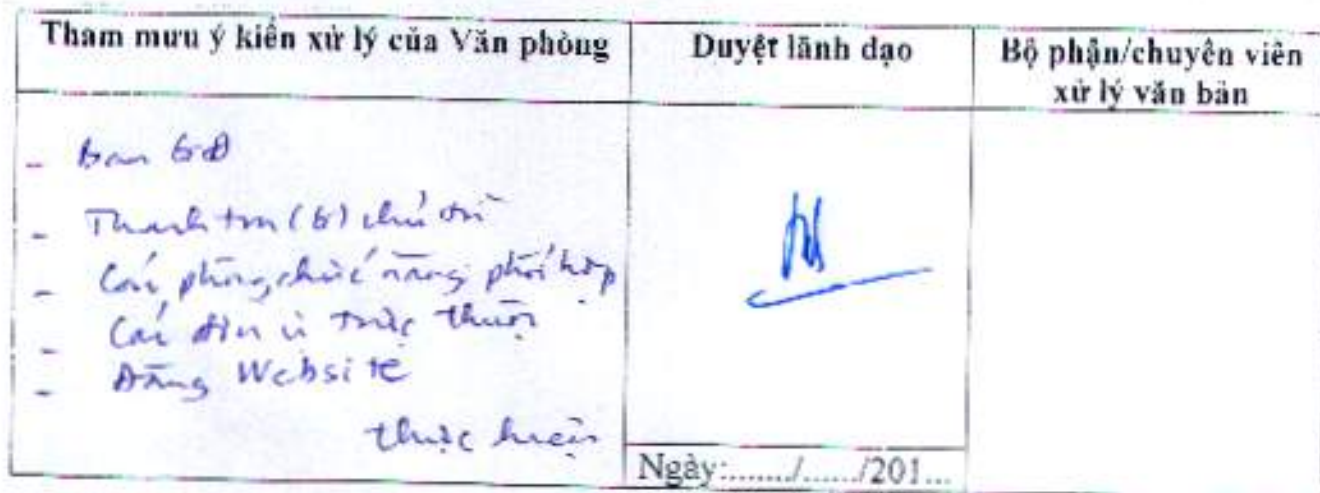 Tham mưu ý kiến xử lý của Văn phòng
Duyệt lãnh đạo
Bộ phận/chuyên viên
xử lý văn bản
- Ban GĐ
- Thanh tra (b) chủ trì
- Các phòng chức năng phối hợp
- Các đơn vị trực thuộc
- Đăng Website
thực hiện
Ngày:......../......./201...